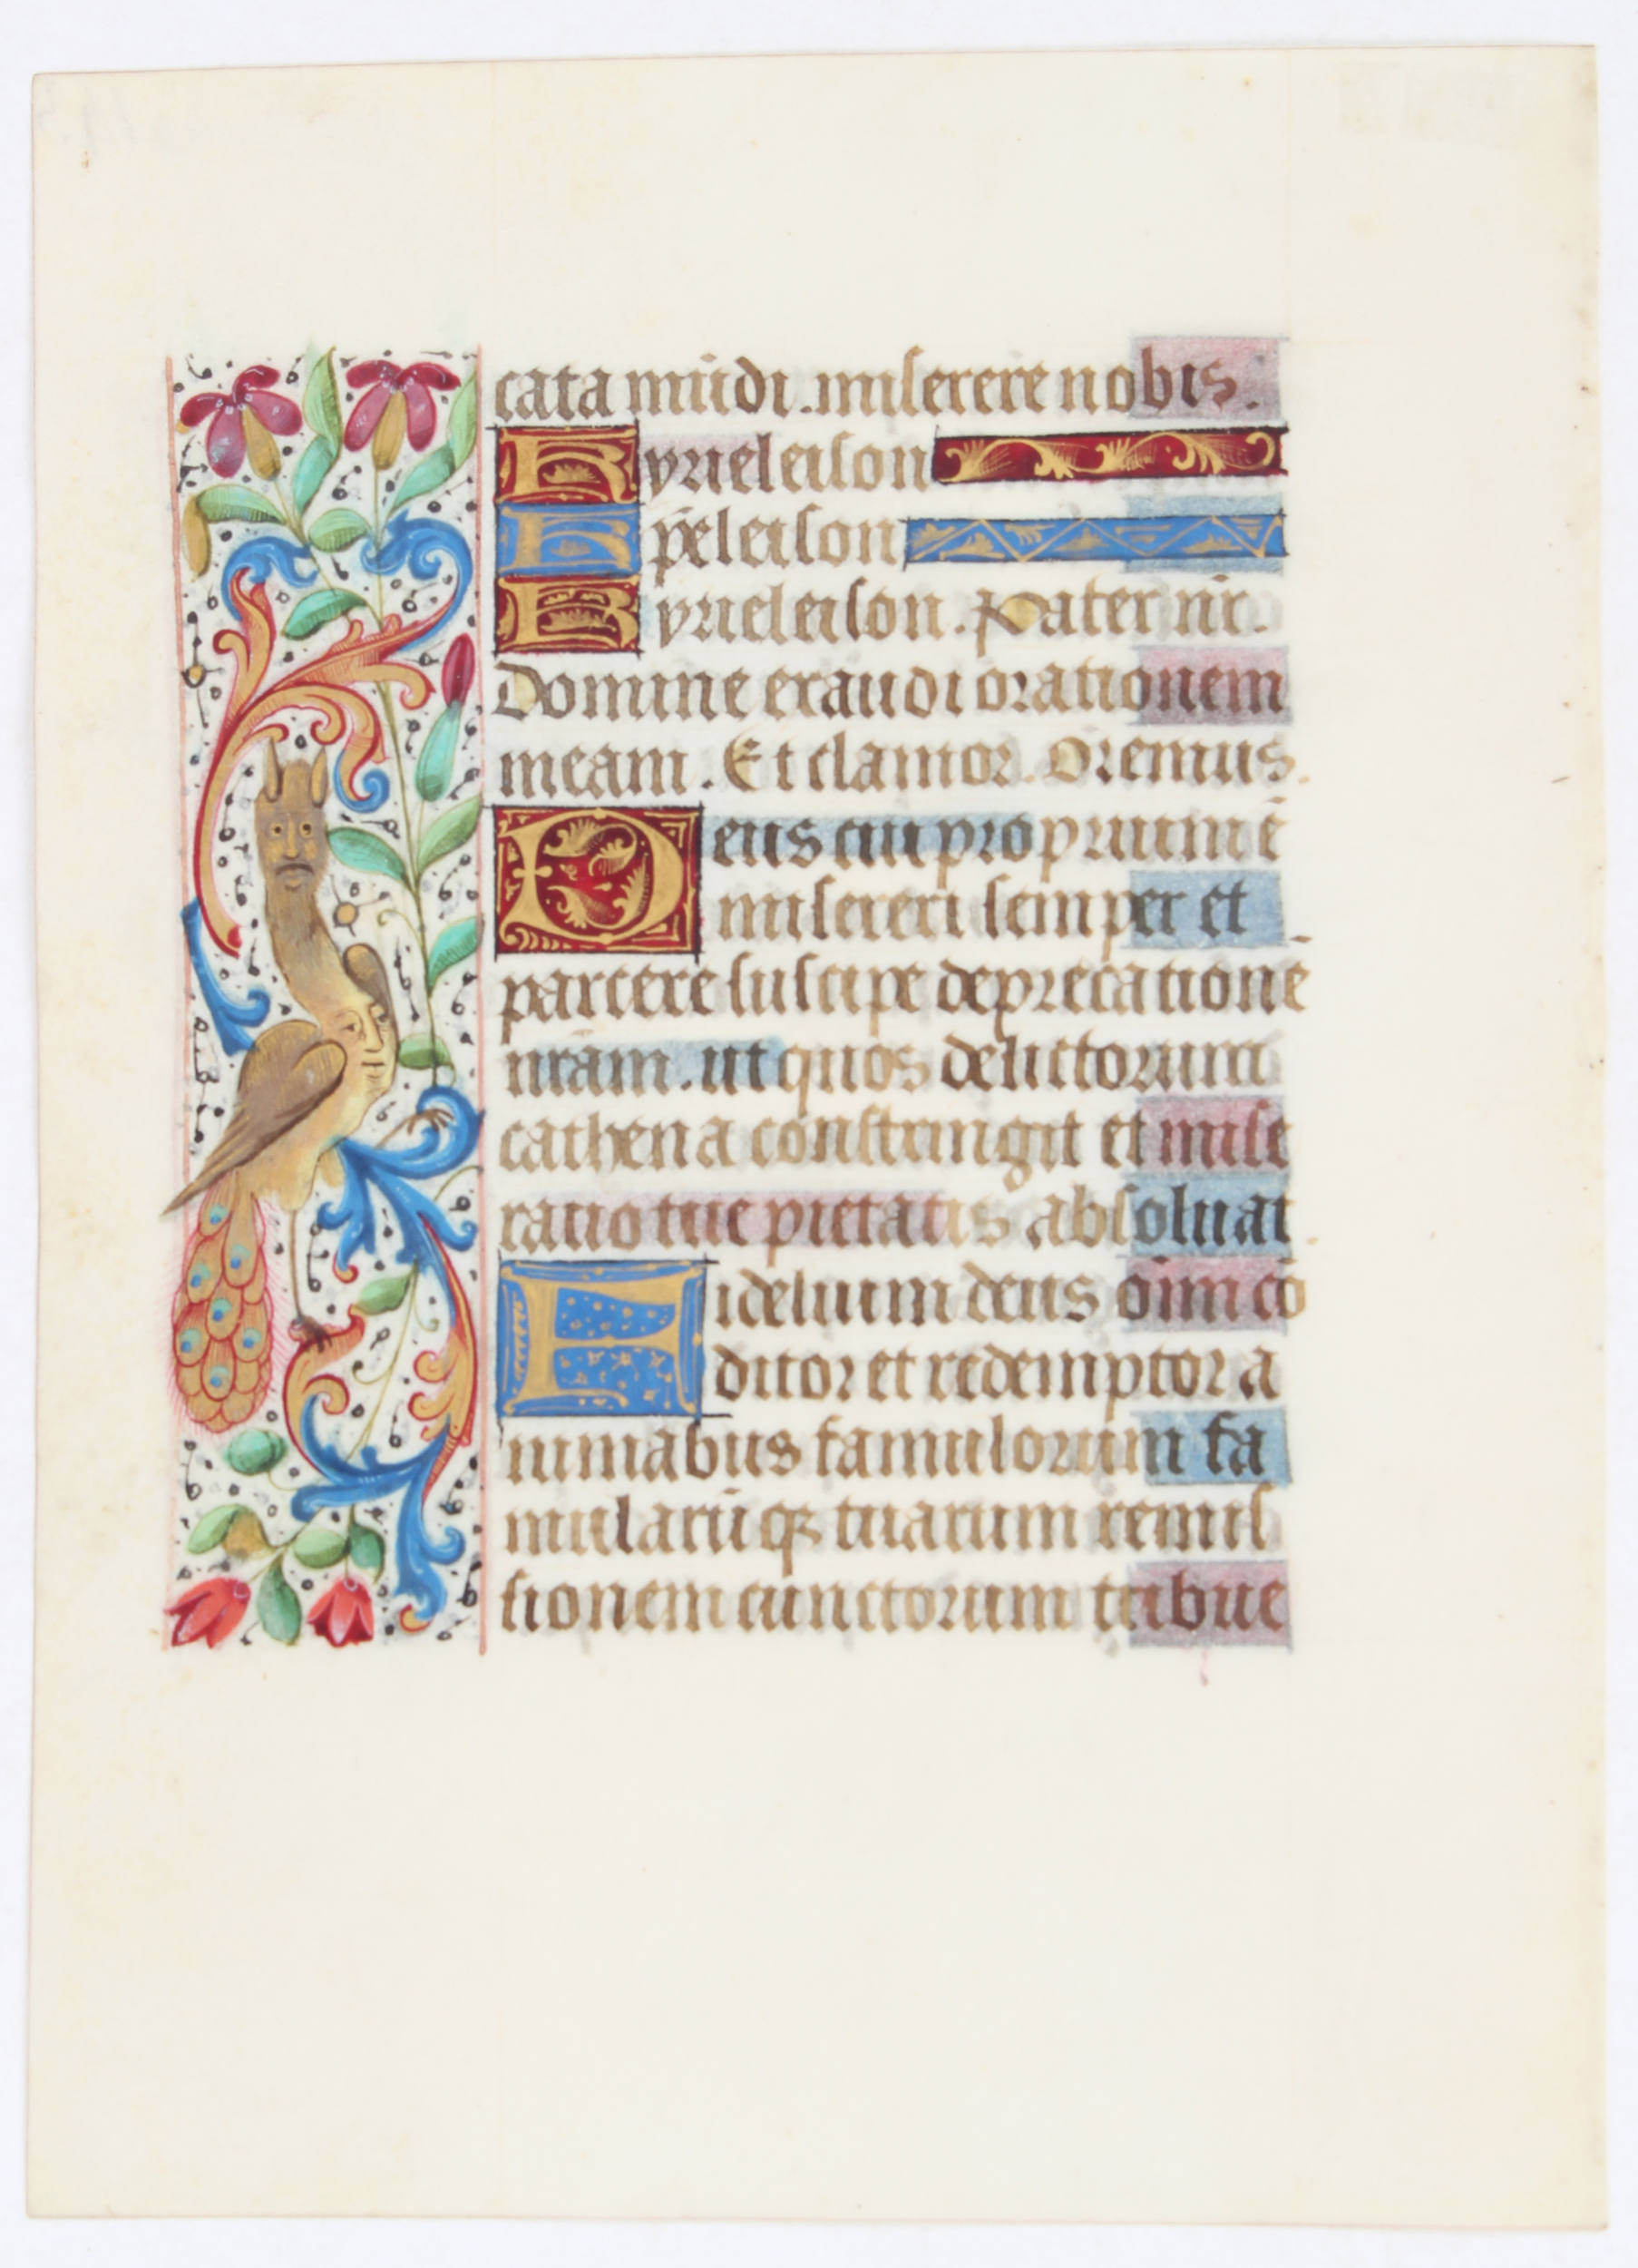 cata mūdi. miserere nobis.
Kyrieleison
Xp̄eleison
Kyrieleison. Pater nr̄.
Domine exaudi orationem
meam. Et clamor. Oremus.
Deus cui proprium ē
misereri semper et
parcere suscipe deprecationē
nr̄am. ut quos delictorum
cathena constringit et mise
ratio tue pietatis absoluat.
Fidelium deus oīm cō
ditor et redemptor a
nimabus famulorum fa
mularūqꝫ tuarum remis
sionem cunctorum tribue